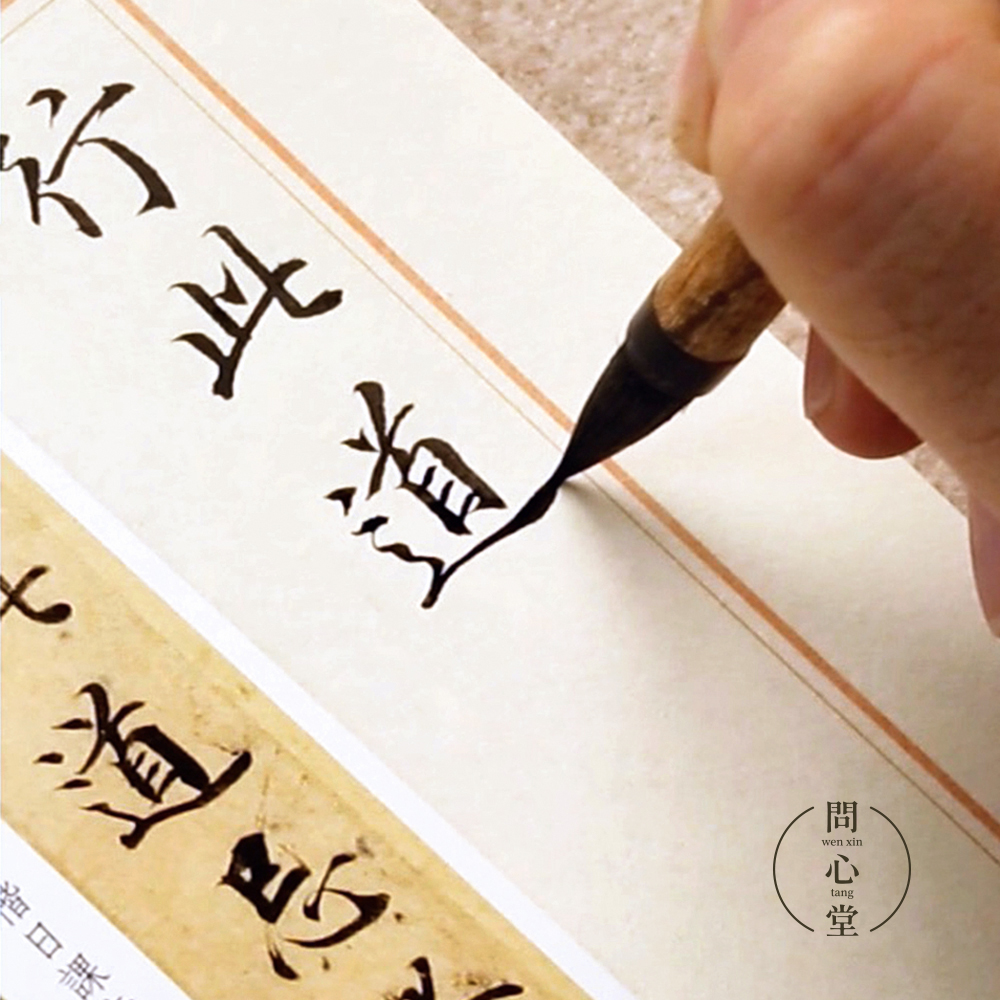 行此道
道
日課
問
wen xin
心
tang
堂